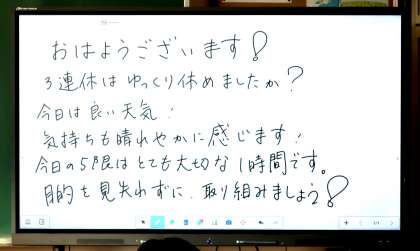 おはようございます!
3連休はゆっくり休めましたか?
今日は良い天気!
気持ちも晴れやかに感じます!
今日の5限はとても大切な1時間です。
目的を見失わずに、取り組みましょう!